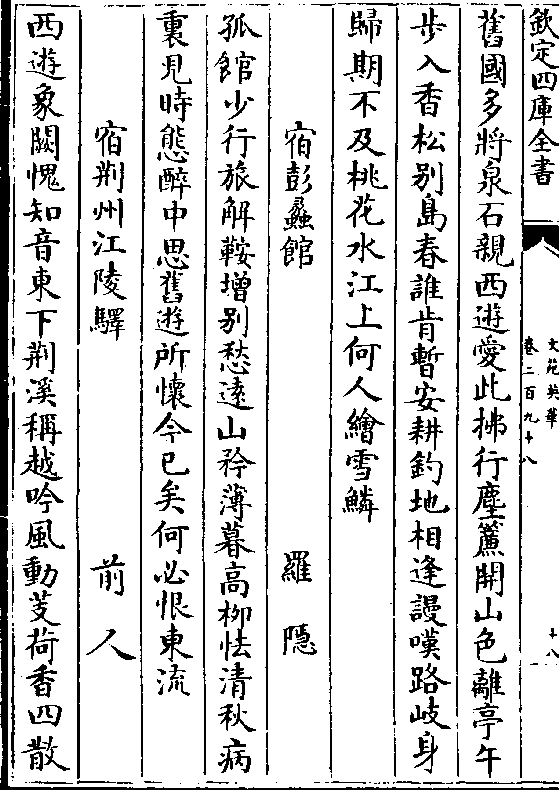 欽定四庫全書
文苑英華
卷二百九十八
十八
舊國多將泉石親西遊愛此拂行塵簾開山色離亭午
步入香松别島春誰肯暫安耕釣地相逢謾嘆路岐身
歸期不及桃花水江上何人繪雪鱗
宿彭蠡館 羅隱
孤館少行旅解鞍增别愁遠山矜薄暮高柳怯清秋病
裏見時態醉中思舊遊所懷今已矣何必恨東流
宿荆州江陵驛 前人
西遊象闕愧知音東下荆溪稱越吟風動芰荷香四散